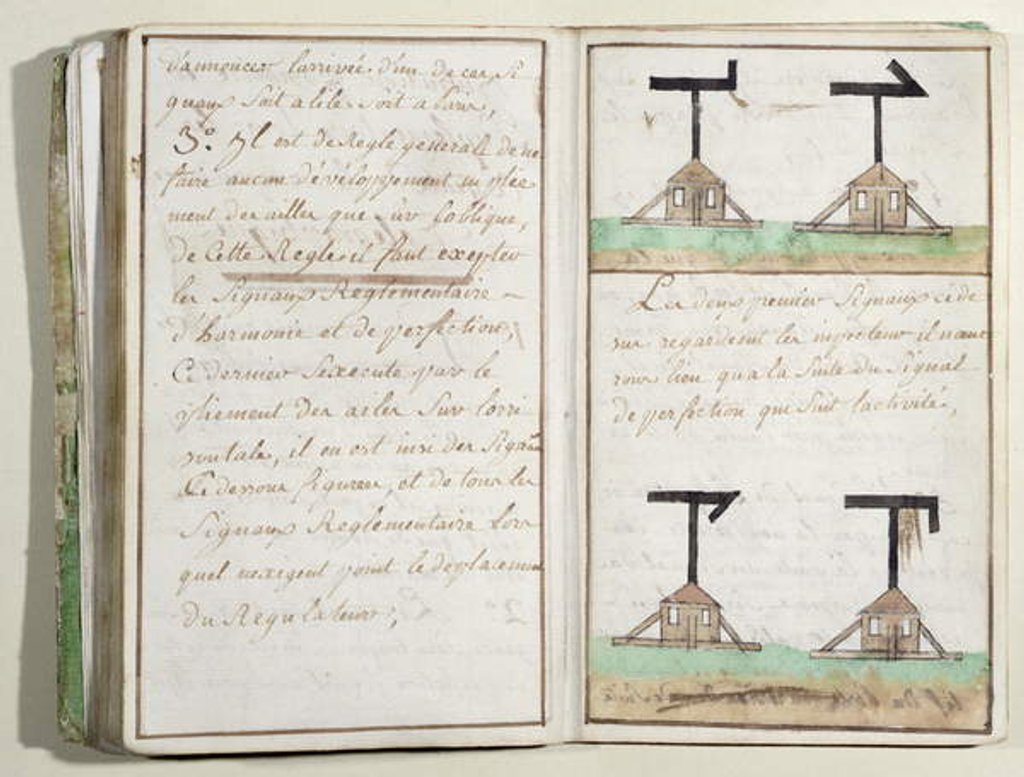 d'annoncer larrivée d'un de ces si
gnaux soit a lile soit a
3.º Yl est de Regle generalle de ne
faire aucun développement ni plie
ment des ailles que sur loblique,
de Cette Regle il faut excepter
les Signaux Reglementaire
d'harmonie et de perfection,
Ce dernier sexecute par le
pliement des ailes sur lorri
zontale, il en est insi des Signaux
Ci dessous figurés, et de tous les
Signaux Reglementaire lors
quel nexigent point le deplacement
du Regulateur;
Les deux premier Signaux ci de
sus regardent les inspecteur il nau
rons lieu qua la Suite du Signal
de perfection qui suit lactivité,